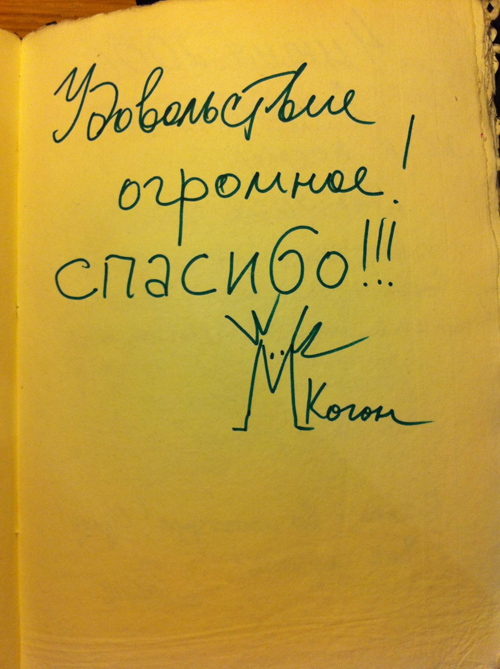 Удовольствие
огромное!
спасибо!!!
МК
Коган